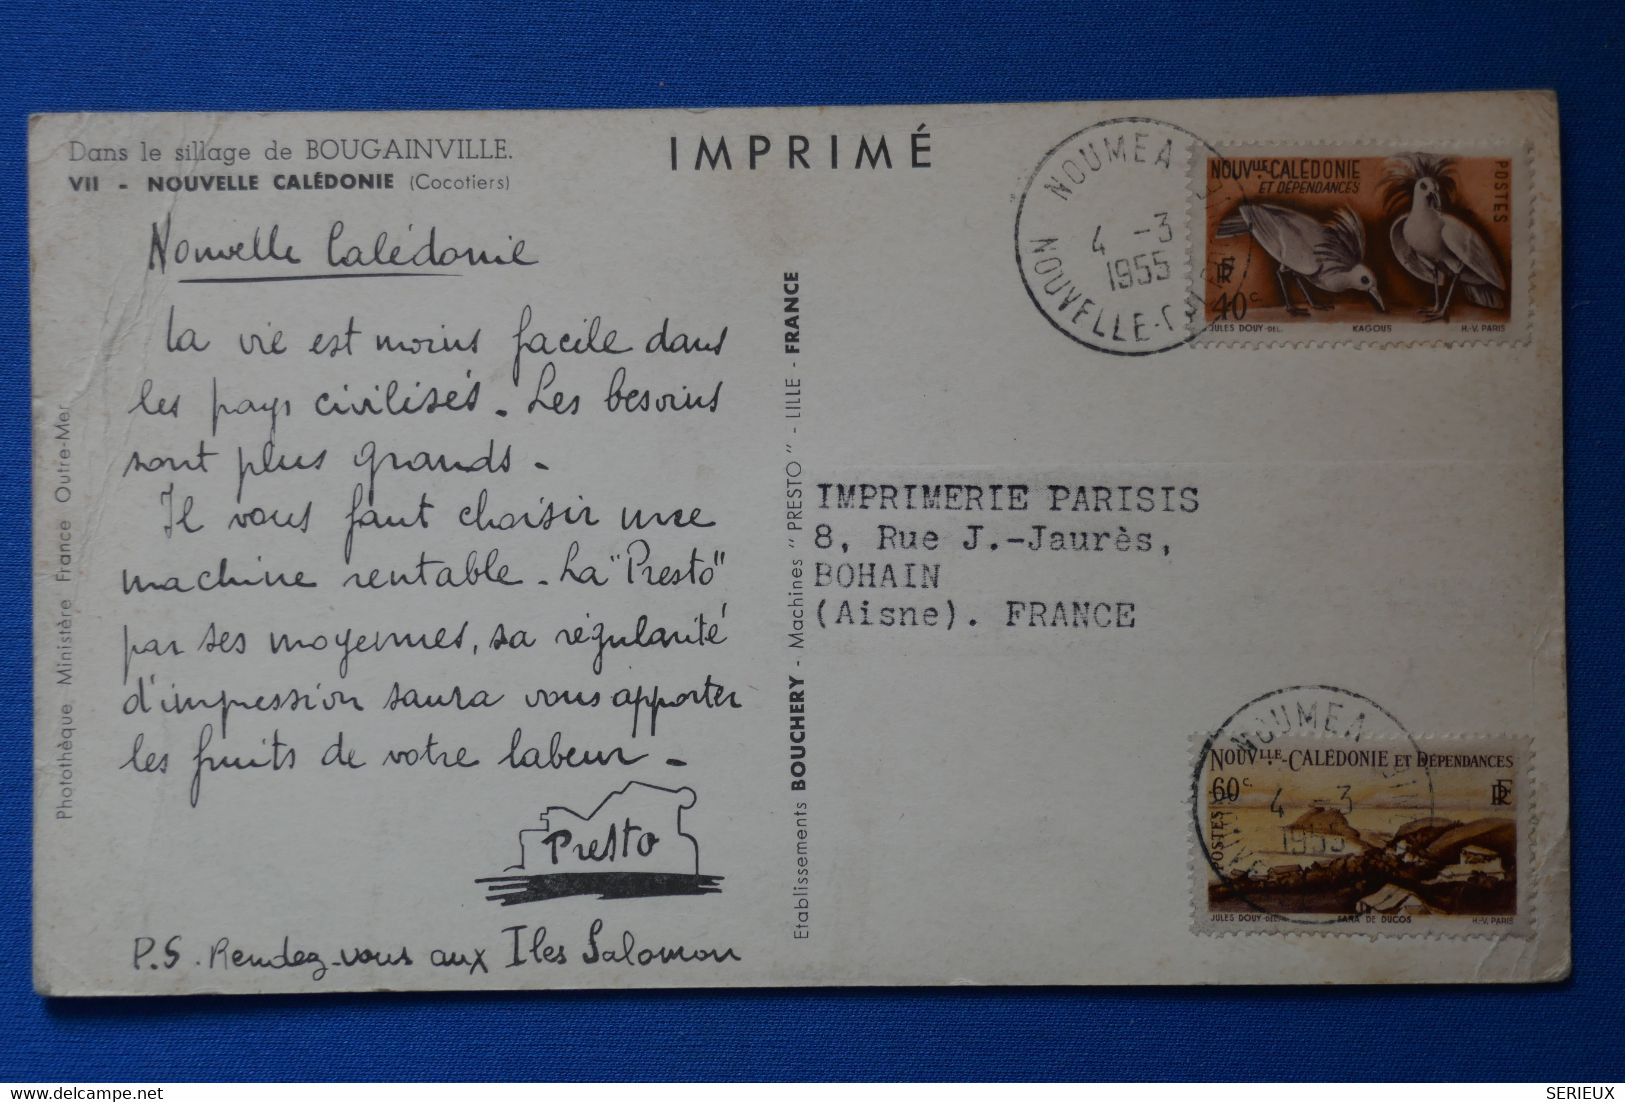 Dans le sillage de BOUGAINVILLE.
VII - NOUVELLE CALÉDONIE (Cocotiers)
IMPRIMÉ
Nouvelle Calédonie
La vie est moins facile dans
les pays civilisés. Les besoins
sont plus grands.
Il vous faut choisir une
machine rentable. La "Presto"
par ses moyennes, sa régularité
d'impression saura vous apporter
les fruits de votre labeur.
Presto
P.S. Rendez-vous aux Iles Salomon
Photothèque, Ministère France Outre-Mer
Etablissements BOUCHERY - Machines "PRESTO" - LILLE - FRANCE
IMPRIMERIE PARISIS
8, Rue J.-Jaurès,
BOHAIN
(Aisne). FRANCE
NOUMEA
4 -3
1955
NOUVELLE-CALEDONIE
NOUVLLE CALÉDONIE
ET DÉPENDANCES
POSTES
RF
40c
JULES DOUY-DEL. KAGOUS H.-V. PARIS
NOUMEA
4 -3
1955
NOUVLLE-CALÉDONIE ET DÉPENDANCES
60c.
RF
POSTES
JULES DOUY-DEL. SANA DE DUCOS H.-V. PARIS
delcampe.net
SERIEUX